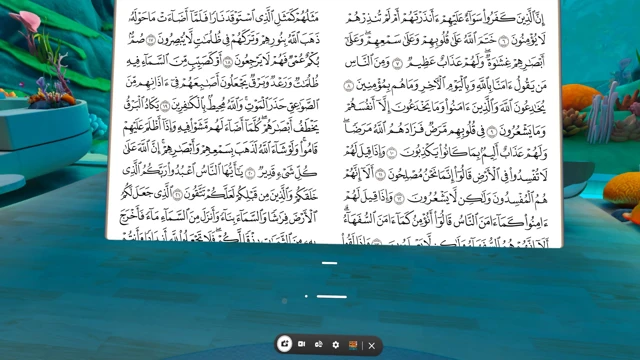 إِنَّ ٱلَّذِينَ كَفَرُوا۟ سَوَآءٌ عَلَيْهِمْ ءَأَنذَرْتَهُمْ أَمْ لَمْ تُنذِرْهُمْ
لَا يُؤْمِنُونَ ٦ خَتَمَ ٱللَّهُ عَلَىٰ قُلُوبِهِمْ وَعَلَىٰ سَمْعِهِمْ ۖ وَعَلَىٰٓ
أَبْصَـٰرِهِمْ غِشَـٰوَةٌ ۖ وَلَهُمْ عَذَابٌ عَظِيمٌ ٧ وَمِنَ ٱلنَّاسِ
مَن يَقُولُ ءَامَنَّا بِٱللَّهِ وَبِٱلْيَوْمِ ٱلْـَٔاخِرِ وَمَا هُم بِمُؤْمِنِينَ ٨
يُخَـٰدِعُونَ ٱللَّهَ وَٱلَّذِينَ ءَامَنُوا۟ وَمَا يَخْدَعُونَ إِلَّآ أَنفُسَهُمْ
وَمَا يَشْعُرُونَ ٩ فِى قُلُوبِهِم مَّرَضٌ فَزَادَهُمُ ٱللَّهُ مَرَضًا ۖ
وَلَهُمْ عَذَابٌ أَلِيمٌۢ بِمَا كَانُوا۟ يَكْذِبُونَ ١٠ وَإِذَا قِيلَ لَهُمْ
لَا تُفْسِدُوا۟ فِى ٱلْأَرْضِ قَالُوٓا۟ إِنَّمَا نَحْنُ مُصْلِحُونَ ١١ أَلَآ إِنَّهُمْ
هُمُ ٱلْمُفْسِدُونَ وَلَـٰكِن لَّا يَشْعُرُونَ ١٢ وَإِذَا قِيلَ لَهُمْ
ءَامِنُوا۟ كَمَآ ءَامَنَ ٱلنَّاسُ قَالُوٓا۟ أَنُؤْمِنُ كَمَآ ءَامَنَ ٱلسُّفَهَآءُ ۗ
أَلَآ إِنَّهُمْ هُمُ ٱلسُّفَهَآءُ وَلَـٰكِن لَّا يَعْلَمُونَ ١٣ وَإِذَا لَقُوا۟
مَثَلُهُمْ كَمَثَلِ ٱلَّذِى ٱسْتَوْقَدَ نَارًا فَلَمَّآ أَضَآءَتْ مَا حَوْلَهُۥ
ذَهَبَ ٱللَّهُ بِنُورِهِمْ وَتَرَكَهُمْ فِى ظُلُمَـٰتٍ لَّا يُبْصِرُونَ ١٧ صُمٌّۢ
بُكْمٌ عُمْىٌ فَهُمْ لَا يَرْجِعُونَ ١٨ أَوْ كَصَيِّبٍ مِّنَ ٱلسَّمَآءِ فِيهِ
ظُلُمَـٰتٌ وَرَعْدٌ وَبَرْقٌ يَجْعَلُونَ أَصَـٰبِعَهُمْ فِىٓ ءَاذَانِهِم مِّنَ
ٱلصَّوَٰعِقِ حَذَرَ ٱلْمَوْتِ ۚ وَٱللَّهُ مُحِيطٌۢ بِٱلْكَـٰفِرِينَ ١٩ يَكَادُ ٱلْبَرْقُ
يَخْطَفُ أَبْصَـٰرَهُمْ ۖ كُلَّمَآ أَضَآءَ لَهُم مَّشَوْا۟ فِيهِ وَإِذَآ أَظْلَمَ عَلَيْهِمْ
قَامُوا۟ ۚ وَلَوْ شَآءَ ٱللَّهُ لَذَهَبَ بِسَمْعِهِمْ وَأَبْصَـٰرِهِمْ ۚ إِنَّ ٱللَّهَ عَلَىٰ
كُلِّ شَىْءٍ قَدِيرٌ ٢٠ يَـٰٓأَيُّهَا ٱلنَّاسُ ٱعْبُدُوا۟ رَبَّكُمُ ٱلَّذِى
خَلَقَكُمْ وَٱلَّذِينَ مِن قَبْلِكُمْ لَعَلَّكُمْ تَتَّقُونَ ٢١ ٱلَّذِى جَعَلَ لَكُمُ
ٱلْأَرْضَ فِرَٰشًا وَٱلسَّمَآءَ بِنَآءً وَأَنزَلَ مِنَ ٱلسَّمَآءِ مَآءً فَأَخْرَجَ
بِهِۦ مِنَ ٱلثَّمَرَٰتِ رِزْقًا لَّكُمْ ۖ فَلَا تَجْعَلُوا۟ لِلَّهِ أَندَادًا وَأَنتُمْ